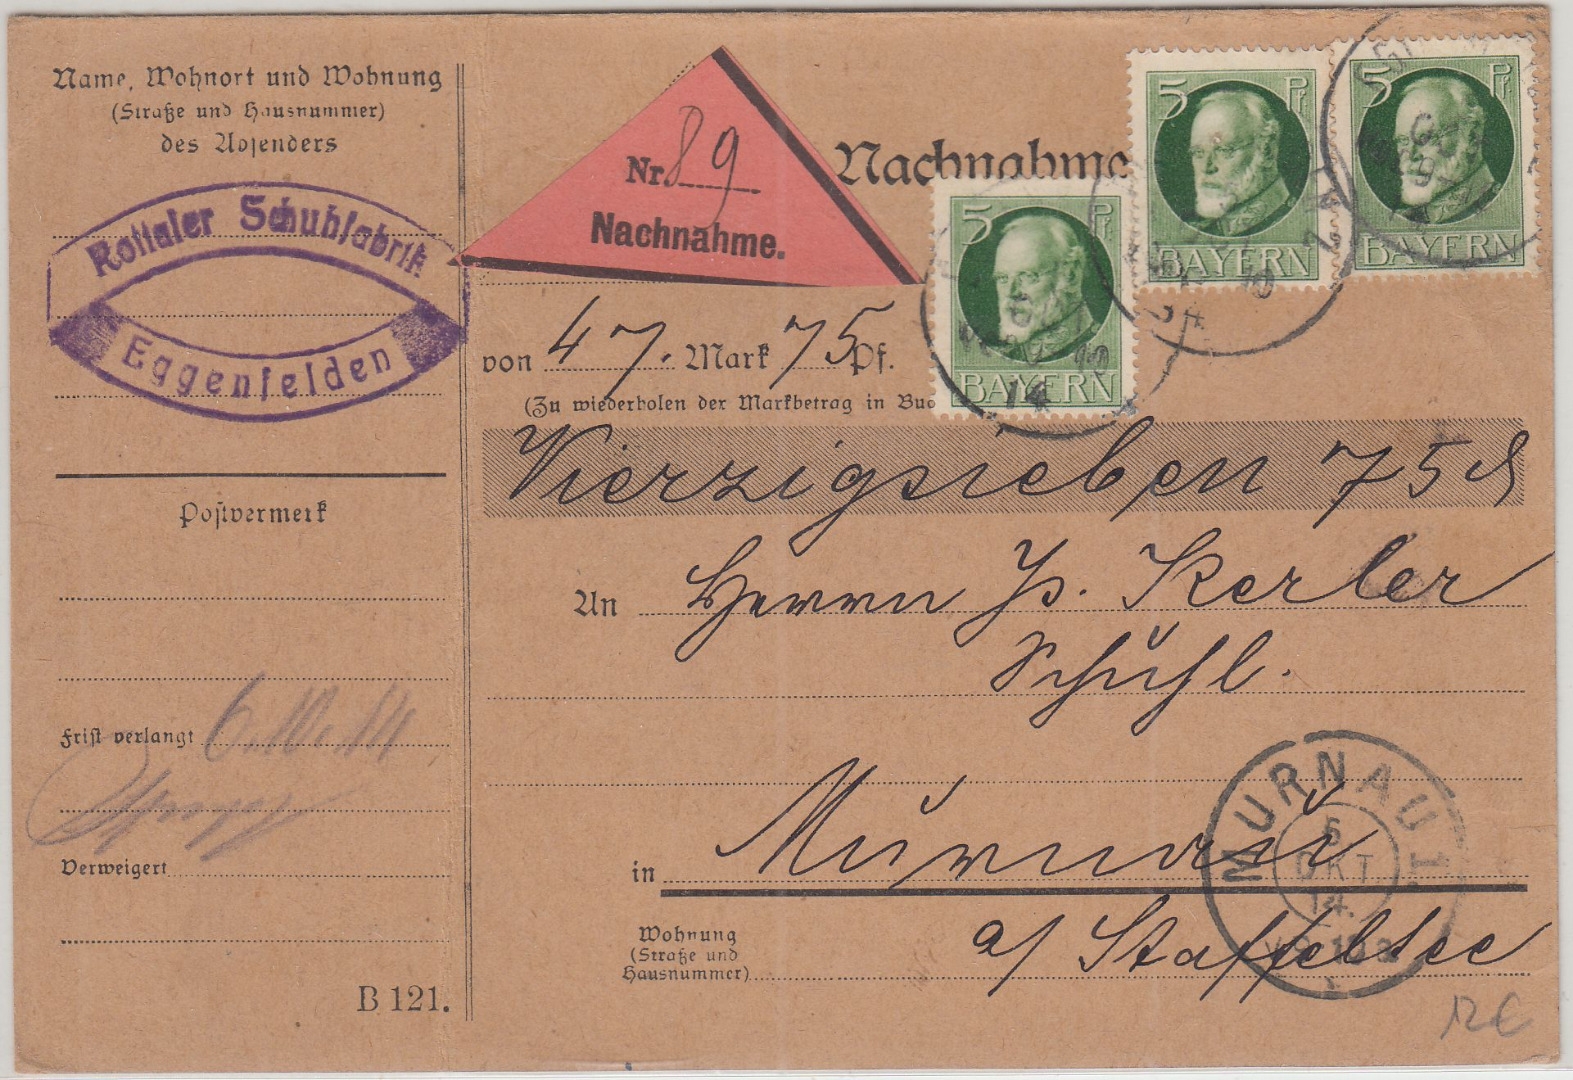 Name, Wohnort und Wohnung
(Straße und Hausnummer)
des Absenders
Rottaler Schuhfabrik
Eggenfelden
Postvermerk
Frist verlangt 6.10.14
Verweigert
B 121.
Nr. 89
Nachnahme.
Nachnahme
5 Pf
BAYERN
5 Pf
BAYERN
5 Pf
BAYERN
von 47. Mark 75 Pf.
(Zu wiederholen der Markbetrag in
Vierzigsieben 75 ₰
An Herrn Kerler
Schuhl.
in Murnau
a/ Staffelsee
Wohnung
(Straße und
Hausnummer)
MURNAU I.
5
OKT
14.
12 €